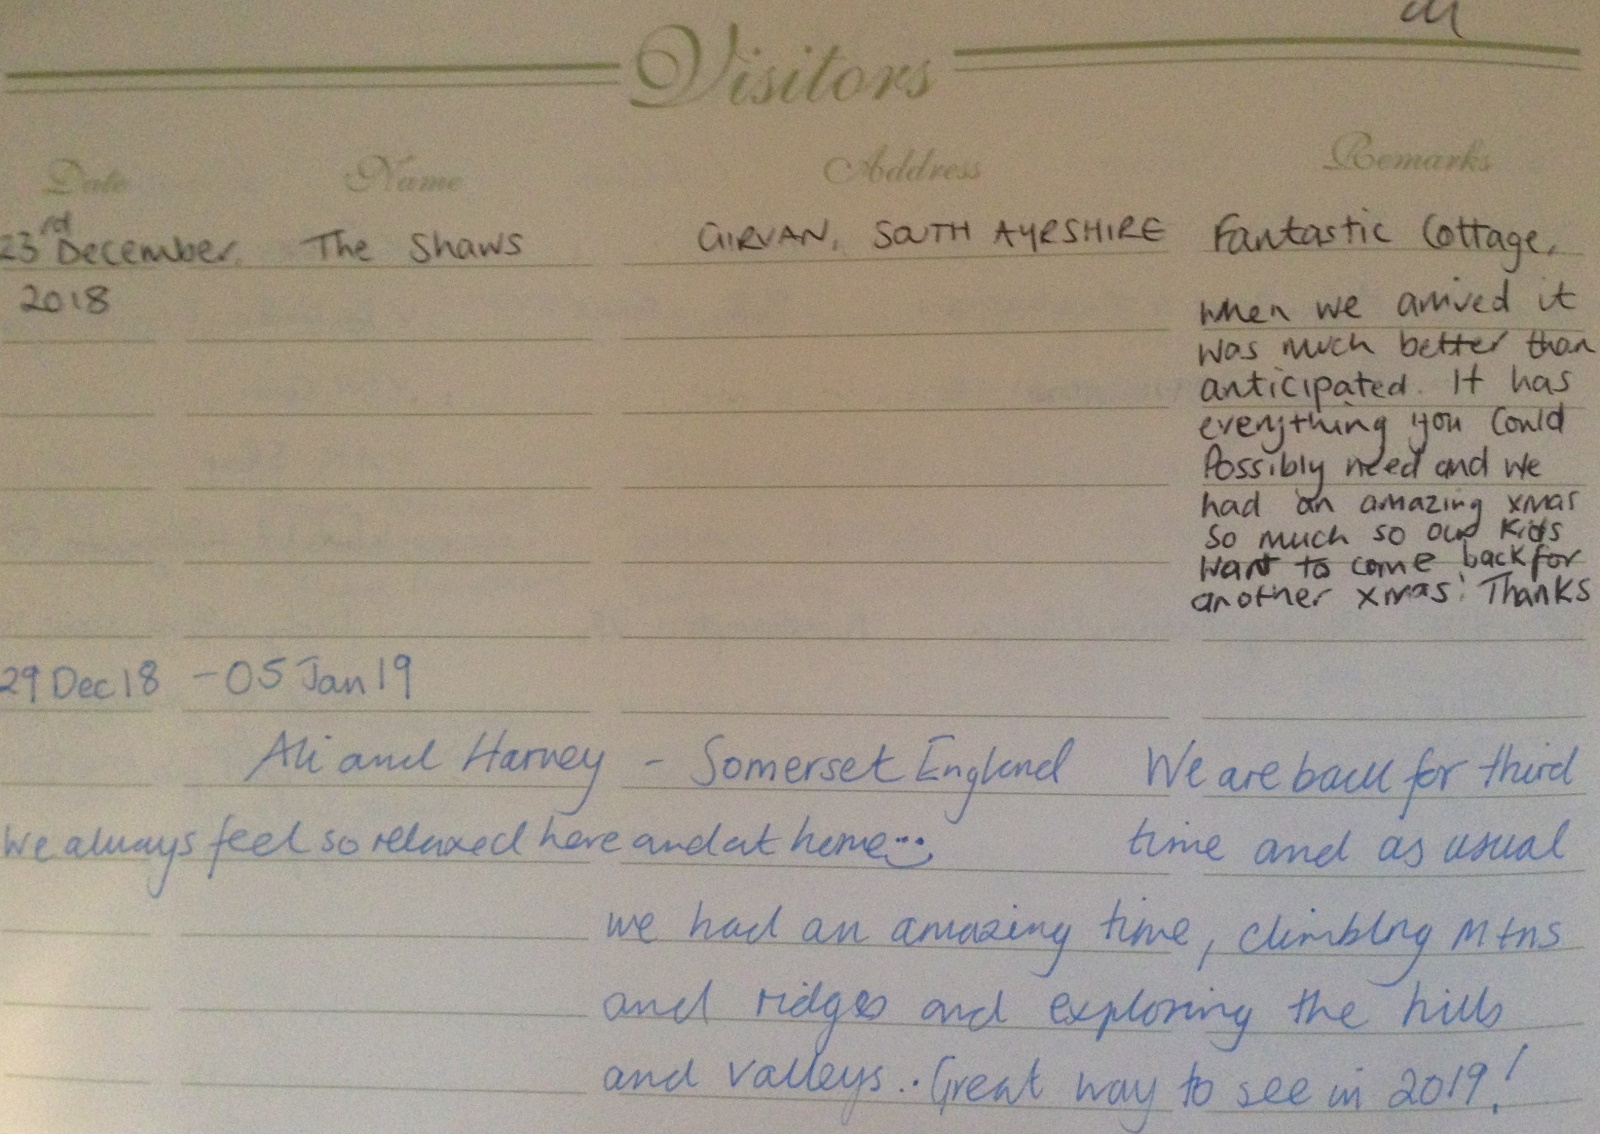 Visitors
Date Name Address Remarks
23rd December, The Shaws GIRVAN, SOUTH AYRSHIRE Fantastic Cottage,
2018 when we arrived it
was much better than
anticipated. It has
everything you could
Possibly need and we
had an amazing xmas
so much so our kids
want to come back for
another xmas! Thanks
29 Dec 18 - 05 Jan 19
Ali and Harvey - Somerset England We are back for third
We always feel so relaxed here and at home time and as usual
we had an amazing time, climbing Mtns
and ridges and exploring the hills
and valleys.. Great way to see in 2019!